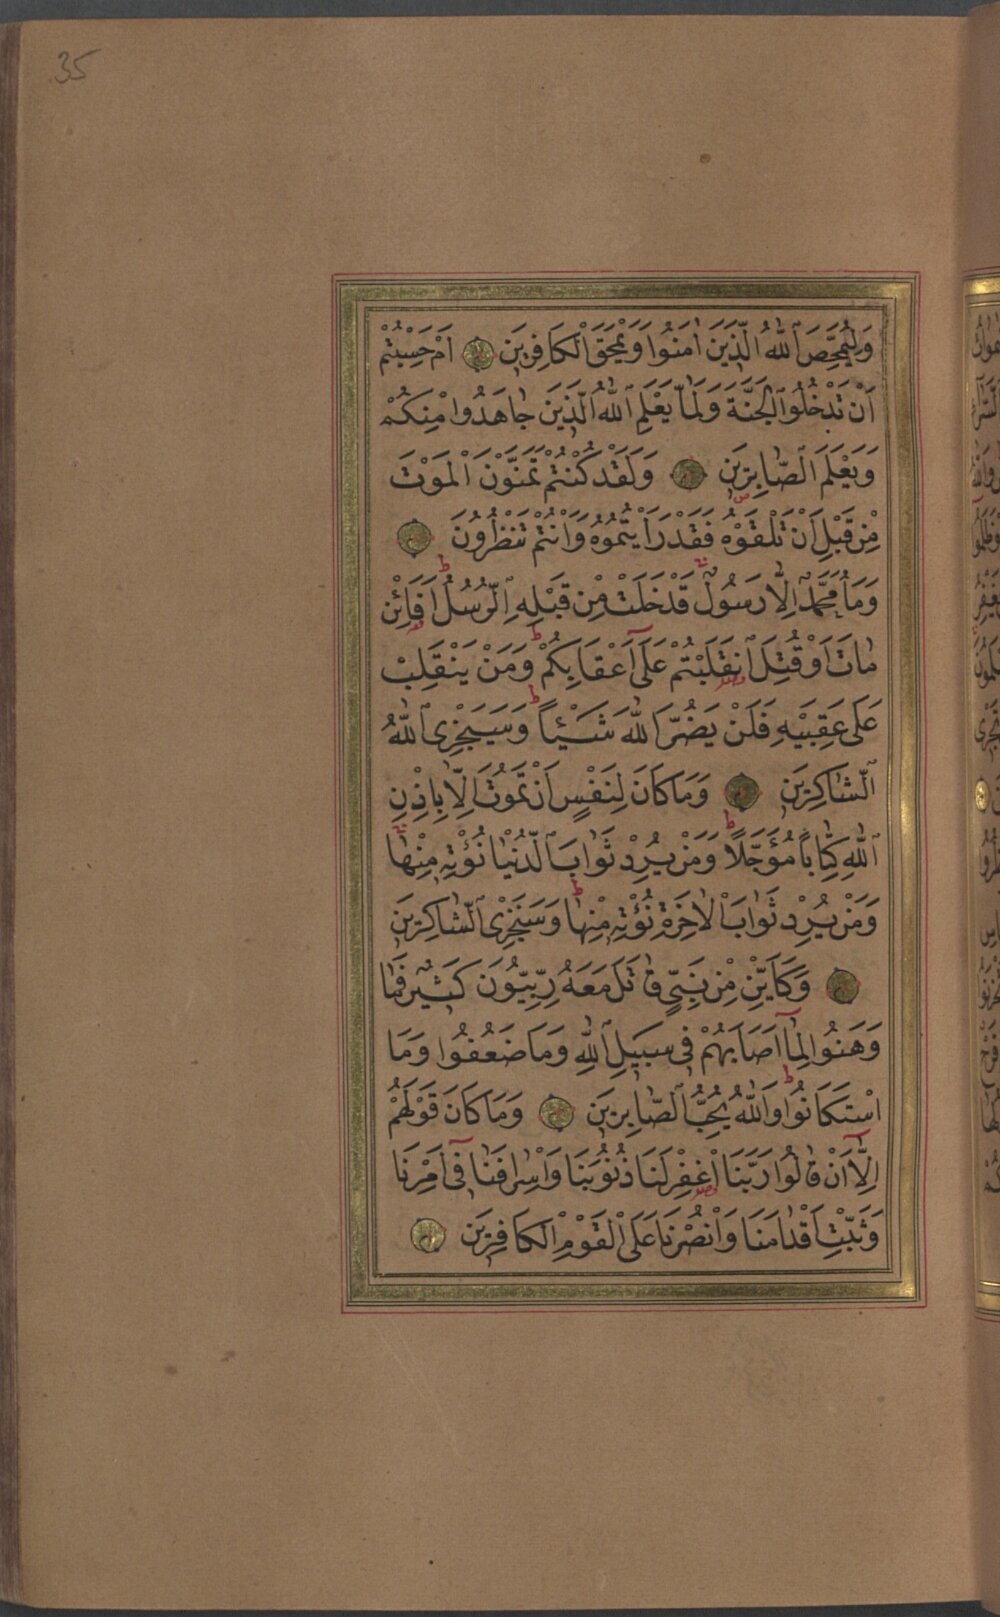 35
وَلِيُمَحِّصَ ٱللّٰهُ الَّذِينَ اٰمَنُوا وَيَمْحَقَ الْكَافِرِينَ اَمْ حَسِبْتُمْ
اَنْ تَدْخُلُوا الْجَنَّةَ وَلَمَّا يَعْلَمِ ٱللّٰهُ الَّذِينَ جَاهَدُوا مِنْكُمْ
وَيَعْلَمَ الصَّابِرِينَ وَلَقَدْ كُنْتُمْ تَمَنَّوْنَ الْمَوْتَ
مِنْ قَبْلِ اَنْ تَلْقَوْهُ فَقَدْ رَاَيْتُمُوهُ وَاَنْتُمْ تَنْظُرُونَ
وَمَا مُحَمَّدٌ اِلَّا رَسُولٌ قَدْ خَلَتْ مِنْ قَبْلِهِ الرُّسُلُ اَفَائِنْ
مَاتَ اَوْ قُتِلَ انْقَلَبْتُمْ عَلَى اَعْقَابِكُمْ وَمَنْ يَنْقَلِبْ
عَلَى عَقِبَيْهِ فَلَنْ يَضُرَّ اللّٰهَ شَيْئًا وَسَيَجْزِى ٱللّٰهُ
ٱلشَّاكِرِينَ وَمَا كَانَ لِنَفْسٍ اَنْ تَمُوتَ اِلَّا بِاِذْنِ
ٱللّٰهِ كِتَابًا مُؤَجَّلًا وَمَنْ يُرِدْ ثَوَابَ الدُّنْيَا نُؤْتِهِ مِنْهَا
وَمَنْ يُرِدْ ثَوَابَ الْاٰخِرَةِ نُؤْتِهِ مِنْهَا وَسَنَجْزِى ٱلشَّاكِرِينَ
وَكَاَيِّنْ مِنْ نَبِىٍّ قَاتَلَ مَعَهُ رِبِّيُّونَ كَثِيرٌ فَمَا
وَهَنُوا لِمَا اَصَابَهُمْ فِى سَبِيلِ ٱللّٰهِ وَمَا ضَعُفُوا وَمَا
اسْتَكَانُوا وَاللّٰهُ يُحِبُّ الصَّابِرِينَ وَمَا كَانَ قَوْلَهُمْ
اِلَّا اَنْ قَالُوا رَبَّنَا اغْفِرْ لَنَا ذُنُوبَنَا وَاِسْرَافَنَا فِى اَمْرِنَا
وَثَبِّتْ اَقْدَامَنَا وَانْصُرْنَا عَلَى الْقَوْمِ الْكَافِرِينَ